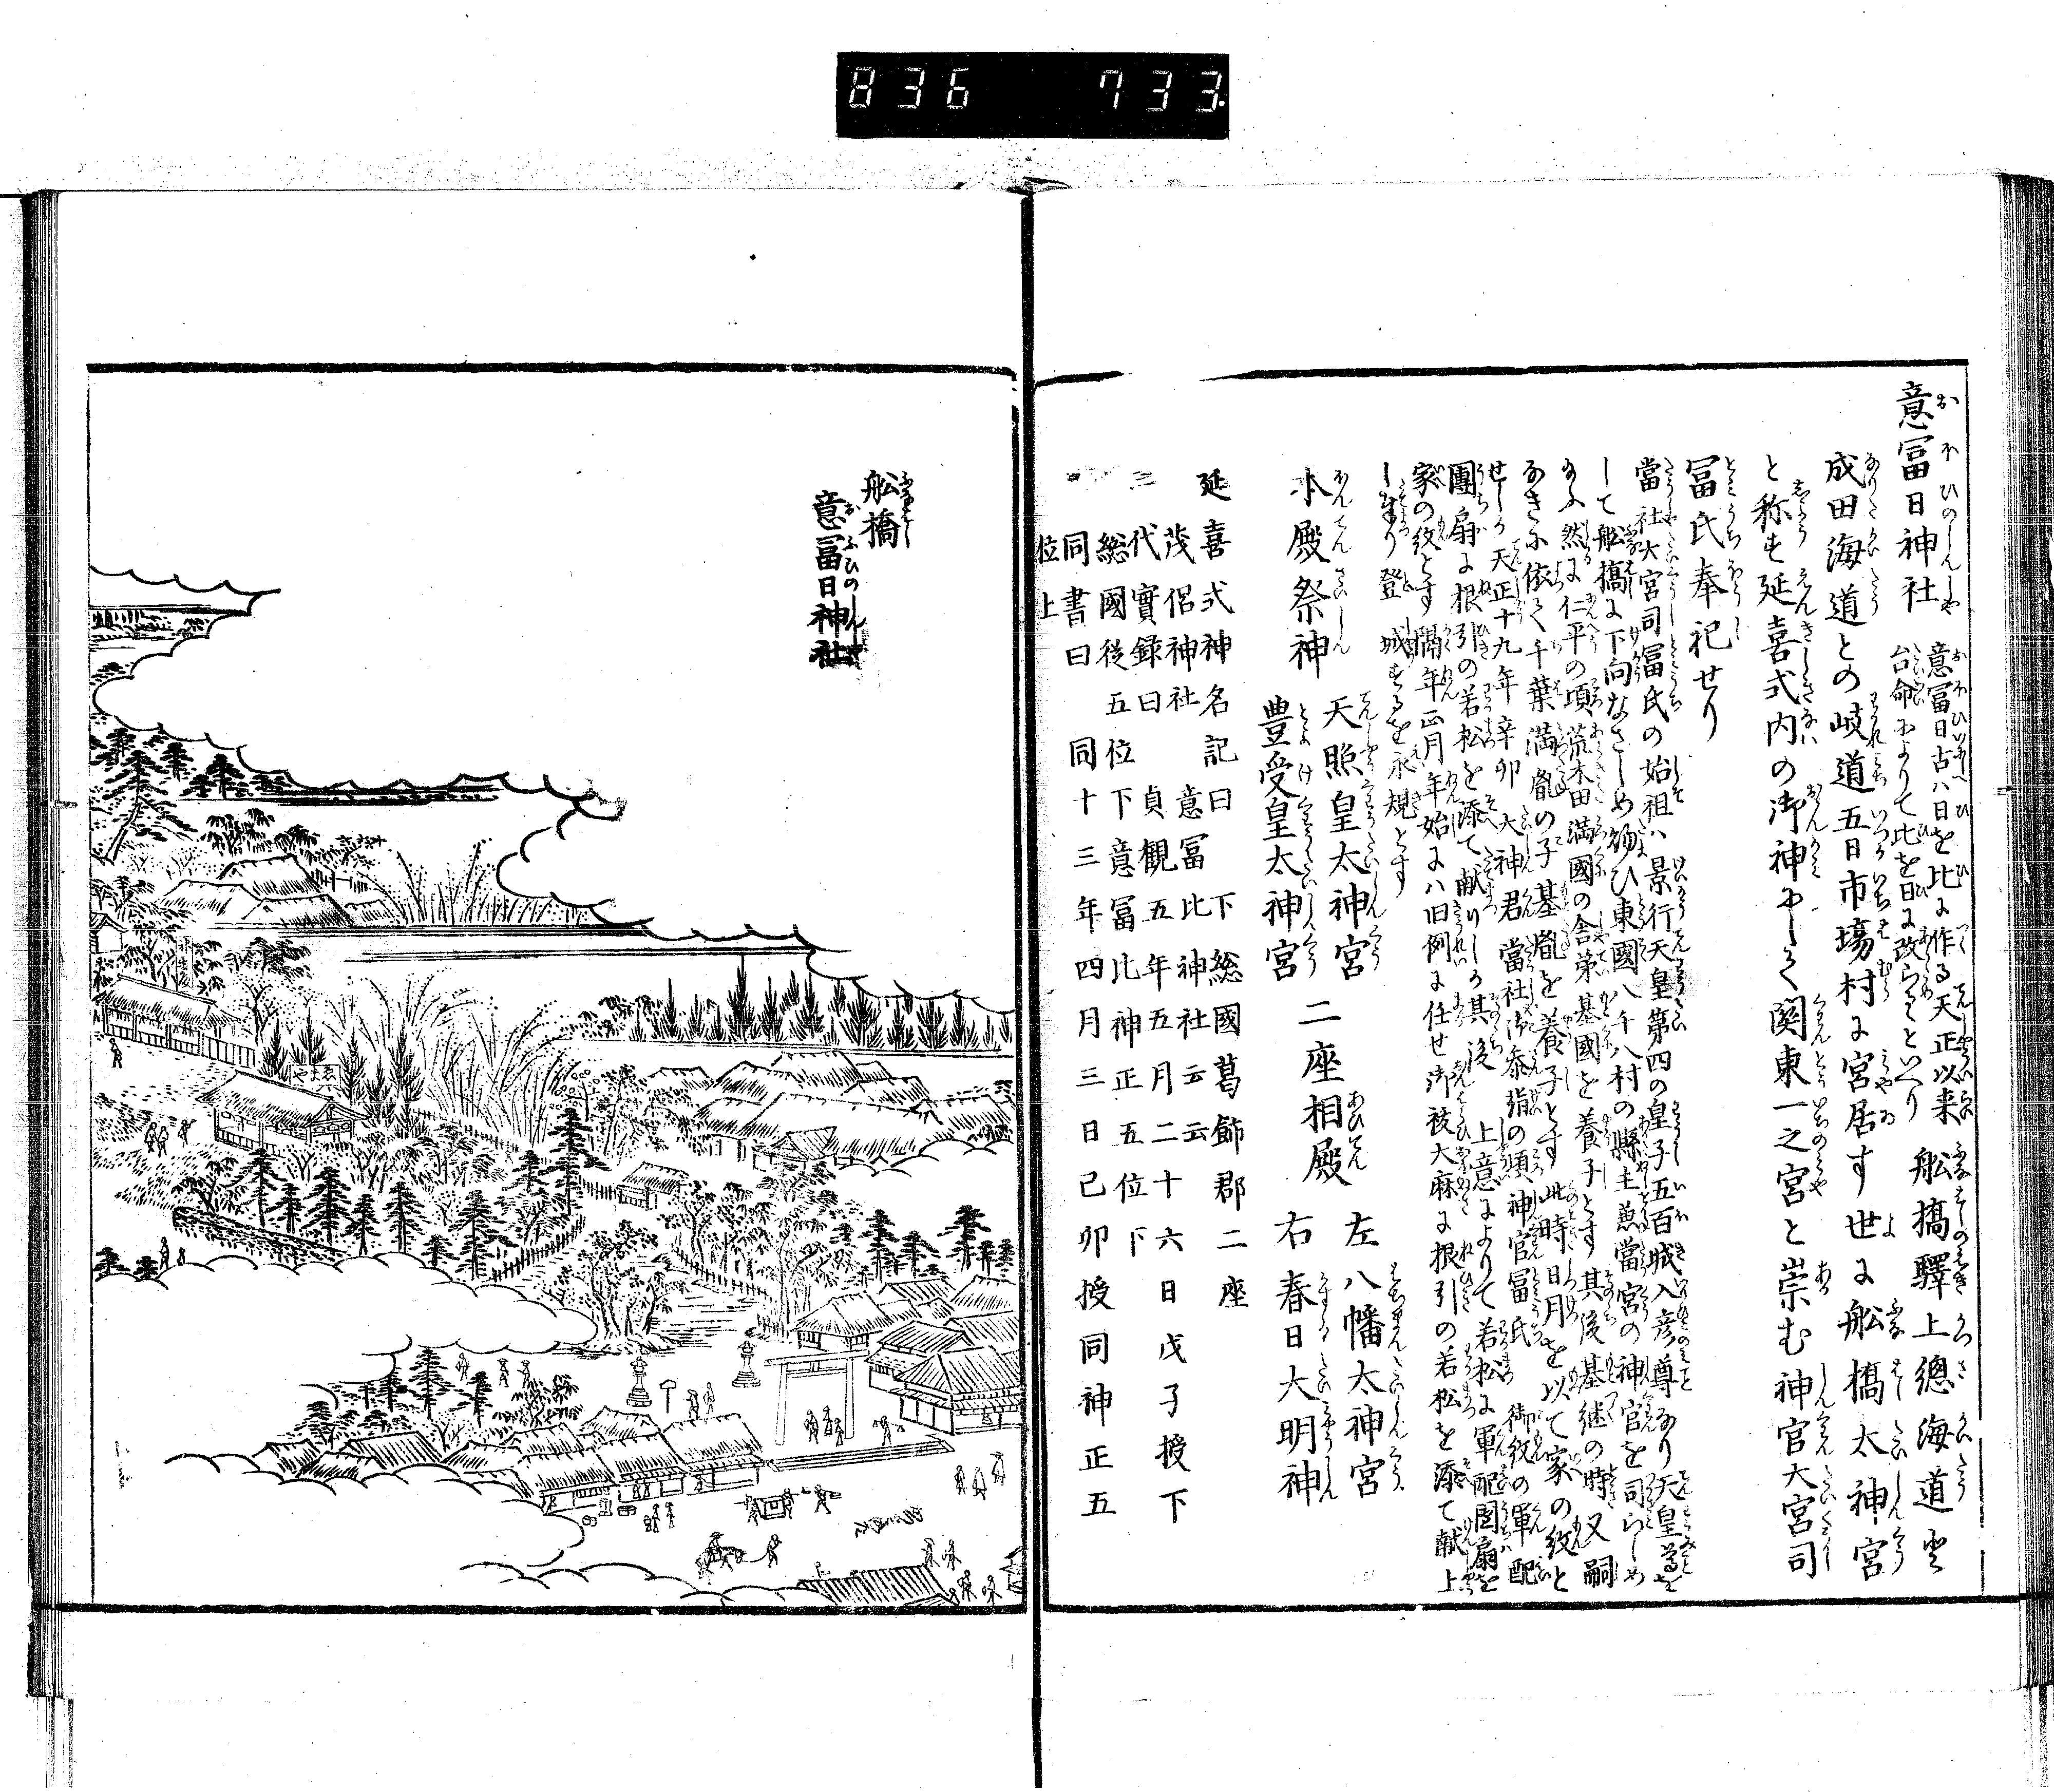 836 733.
意冨日神社 意冨日古ハ日を比に作る天正以来
台命によりて此を日に改らるといへり
舩橋驛上總海道と
成田海道との岐道五日市塲村に宮居す世に舩橋太神宮
と称も延喜式内の御神にして関東一之宮と崇む神官大宮司
冨氏奉祀せり
當社大宮司冨氏の始祖ハ景行天皇第四の皇子五百城入彦尊なり天皇尊を
して舩橋に下向なさしめ給ひ東國八千八村の縣主兼當宮の神官を司らしめ
給ふ然に仁平の頃荒木田満國の舎弟基國を養子とす其後基継の時又嗣
なきに依て千葉満胤の子基胤を養子とす此時日月を以て家の紋と
せしか天正十九年辛卯 大神君當社御参指の頃神官冨氏 御紋の軍配
團扇に根引の若松を添て献りしか其後 上意によりて若松に軍配團扇を
家の紋とす隔年正月年始にハ旧例に任せ御祓大麻に根引の若松を添て献上
し来り登 城するを永規とす
本殿祭神 天照皇太神宮
豊受皇太神宮
二座相殿 左 八幡太神宮
右 春日大明神
延喜式神名記曰 下総國葛飾郡二座
茂侶神社 意冨比神社云云
三代實録曰 貞観五年五月二十六日戊子授下
総國従五位下意冨比神正五位下
同書曰 同十三年四月三日己卯授同神正五
位上
舩橋
意冨日神社
やまゑ